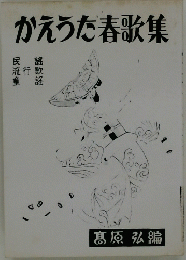 かえうた春歌集
民謡
流行歌
童謡
髙原 弘編